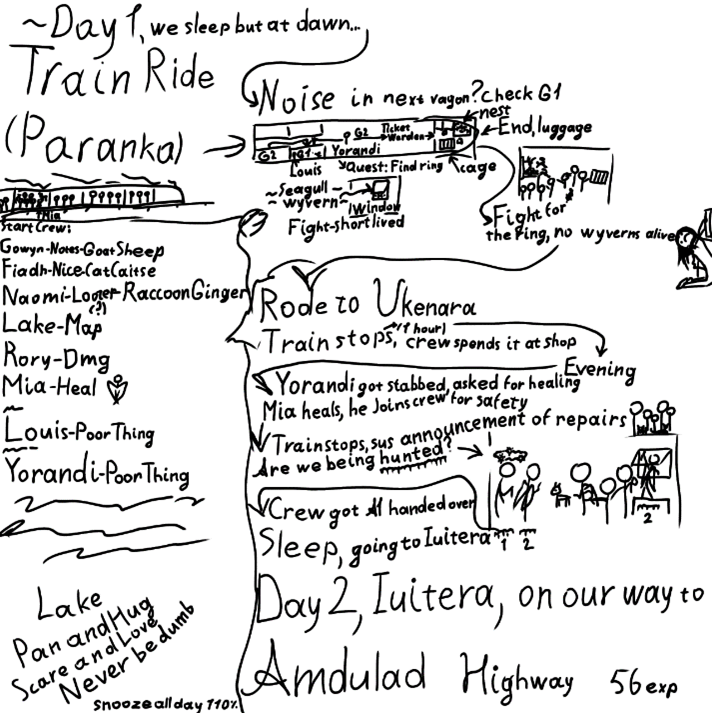 ~Day 1, we sleep but at dawn...
Train Ride
(Paranka)
Noise in next vagon? Check G1
nest
End, luggage
G2
Ticket
Warden
G2
G1
Yorandi
Louis
Quest: Find ring
cage
~Seagull~
~wyvern~
Window
Fight-short lived
Fight for
the Ring, no wyverns alive
Mia
Start Crew:
Gowyn-Notes-Goat Sheep
Fiadh-Nice-Cat Caitse
Naomi-Looter-Raccoon Ginger
(?)
Lake-Map
Rory-Dmg
Mia-Heal
Louis-Poor Thing
Yorandi-Poor Thing
Rode to Ukenara
(1 hour)
Train stops, crew spends it at shop
Evening
Yorandi got stabbed, asked for healing
Mia heals, he Joins crew for safety
Train stops, sus announcement of repairs
Are we being hunted?
Crew got handed over
1 2
2
Sleep, going to Iuitera
Day 2, Iuitera, on our way to
Amdulad Highway 56 exp
Lake
Pan and Hug
Scare and Love
Never be dumb
snooze all day 110%